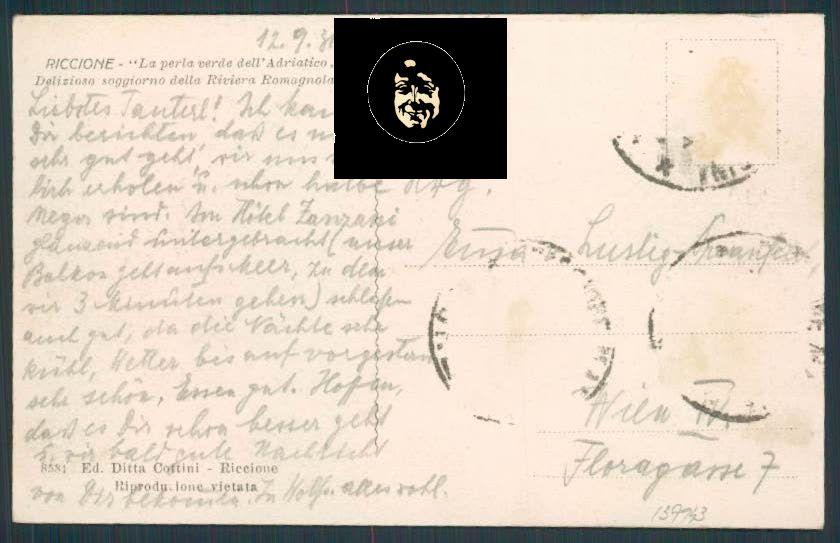 12.9.3
RICCIONE - "La perla verde dell'Adriatico
Delizioso soggiorno della Riviera Romagnola
Liebstes Tanterl! Ich kan
Dir berichten dass es
sehr gut geht, wir uns
lich erholen u. schon halbe
Neger sind. Im Hôtel Zanzani
glänzend untergebracht (unser
Balkon geht aufs Meer, zu dem
wir 3 Minuten gehen) schlafen
auch gut, da die Nächte sehr
kühl, Wetter bis auf vorgestern
sehr schön, Essen gut. Hoffen,
dass es Dir schon besser geht
u. wir bald gute Nachricht
von Dir bekomm. In Wolfs. alles wohl.
8584 Ed. Ditta Cottini - Riccione
Riproduzione vietata
Lustig
Wien
Floragasse 7